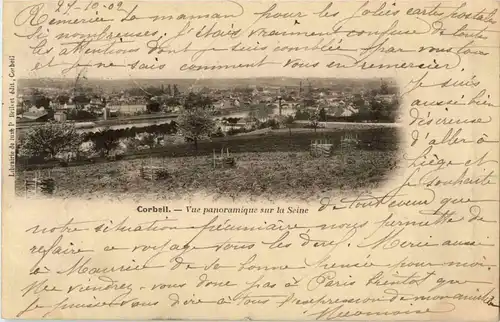 24-10-02
Remercie la maman pour les jolies cartes postales
si nombreuses. J'étais vraiment confuse de toutes
les attentions dont je suis comblée par vous tous
et je ne sais comment vous en remercier.
Je suis
aussi bien
désireuse
d'aller à
Liège et
Je souhaite
de tout cœur que
notre situation pécuniaire nous permette de
refaire ce voyage vous les
à Maurice de sa bonne pensée pour moi.
Ne viendrez-vous pas à Paris bientôt que
je puisse vous dire à tous l'expression de mon amitié
Corbeil. — Vue panoramique sur la Seine
Librairie du Corbeil